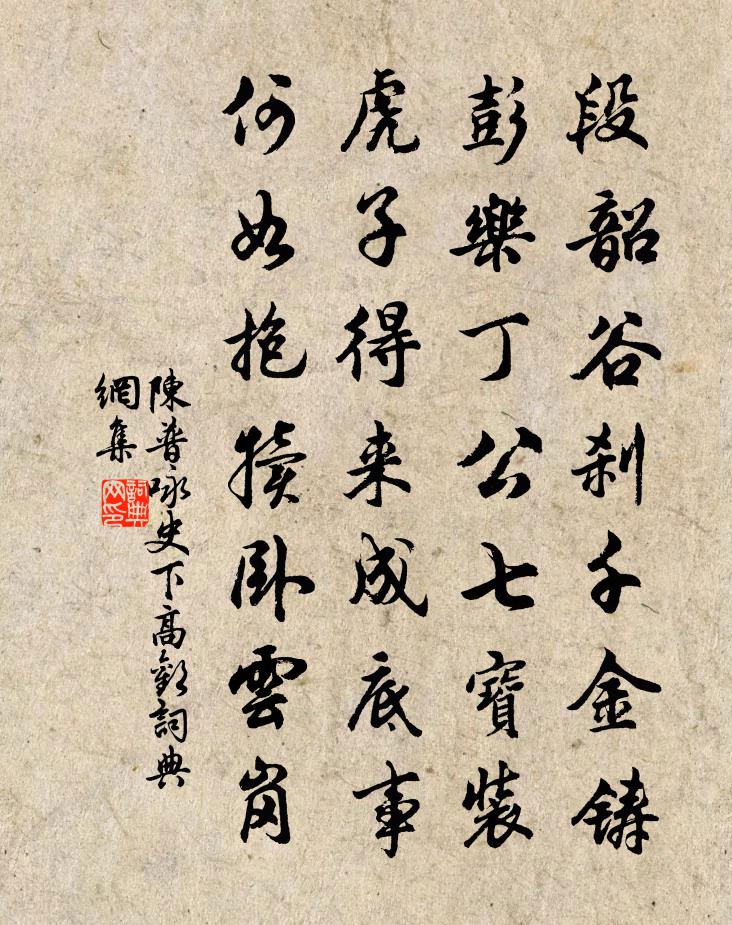 段韶谷刹千金铸
彭樂丁公七寶裝
虎子得来成底事
何如抱犢卧雲岗
陳普咏史下高歡詞典
網集
詞典
网印